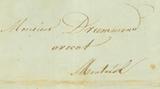 Monsieur Drummond
avocat
Montréal